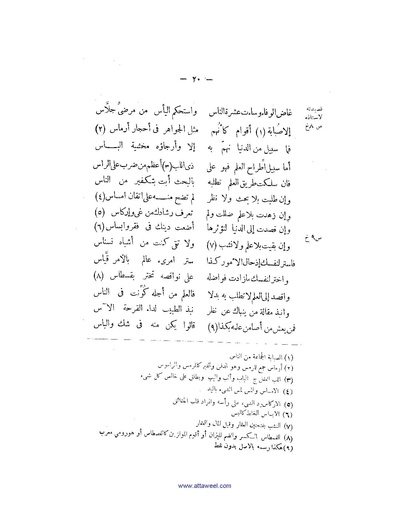 — ٢٠ —
قصيدته
لاستاذه
غاض الوفاء وساءت عشرة الناس واستحكم اليأس من مرضىّ جلّاس
إلا صُبابة (١) أقوام كأنهم مثل الجواهر في أحجار أرماس (٢)
فما سبيل من الدنيا نهمّ به إلا وأرجاؤه مخشية الباس
أما سبيل اطّراح العلم فهو على ذي اللب (٣) أعظم من ضرب على الراس
فان سلكت طريق العلم تطلبه بالبحث أبت بتكفير من الناس
وإن طلبت بلا بحث ولا نظر لم تضح منه على اتقان امساس (٤)
وإن زهدت بلا علم ضللت ولم تعرف رشادك من غي وإركاس (٥)
وإن قصدت إلى الدنيا لتؤثرها أضعت دينك في فقر وابساس (٦)
س ٩ خ
وإن بقيت بلا علم ولا نشب (٧) ولا تقى كنت من أشباه نسناس
فاستر لنفسك إذ حال الأمور كذا ستر امرئ عالم بالأمر قيّاس
واختر لنفسك ما زادت فواضله على نواقصه تختر بقسطاس (٨)
واقصد إلى العلم لا تطلب به بدلا فالعلم من أجله كوّنت في الناس
وانبذ مقالة من ينهاك عن نظر نبذ الطبيب لداء القرحة الآس
فمن يعش من أصامن علمه بكذا (٩) قالوا يكن منه في شك والباس
(١) الصبابة الجماعة من الناس
(٢) أرماس جمع رمس وهو المدفن والقبر
(٣) اللب العقل ويطلق على خالص كل شيء
(٤) الامساس لمس الشيء باليد
(٥) الاركاس رد الشيء على رأسه
(٦) الابساس
(٧) النشب العقار وقيل المال والعقار
(٨) القسطاس الميزان أو أقوم الموازين كالقصطاس أو هو رومي معرب
(٩) هكذا رسمه بالاصل بدون نقط
www.attaweel.com